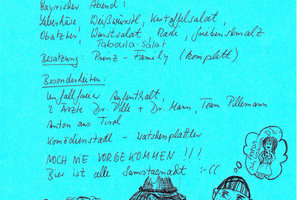 Bayrischer Abend:
Leberkäse, Weißwürstl, Kartoffelsalat,
Obatzter, Wurstsalat, Radi, Griebenschmalz
Taboulé-Salat
Besatzung: Prinz-Family (komplett)
Besonderheiten:
Unfallfreier Aufenthalt,
2 Ärzte Dr. Pille + Dr. Mann, Team Pillemann
Anton aus Tirol
Komödienstadl - Watschenplattler
NOCH NIE VORGEKOMMEN !!!
Bier ist alle Samstagnacht :-((